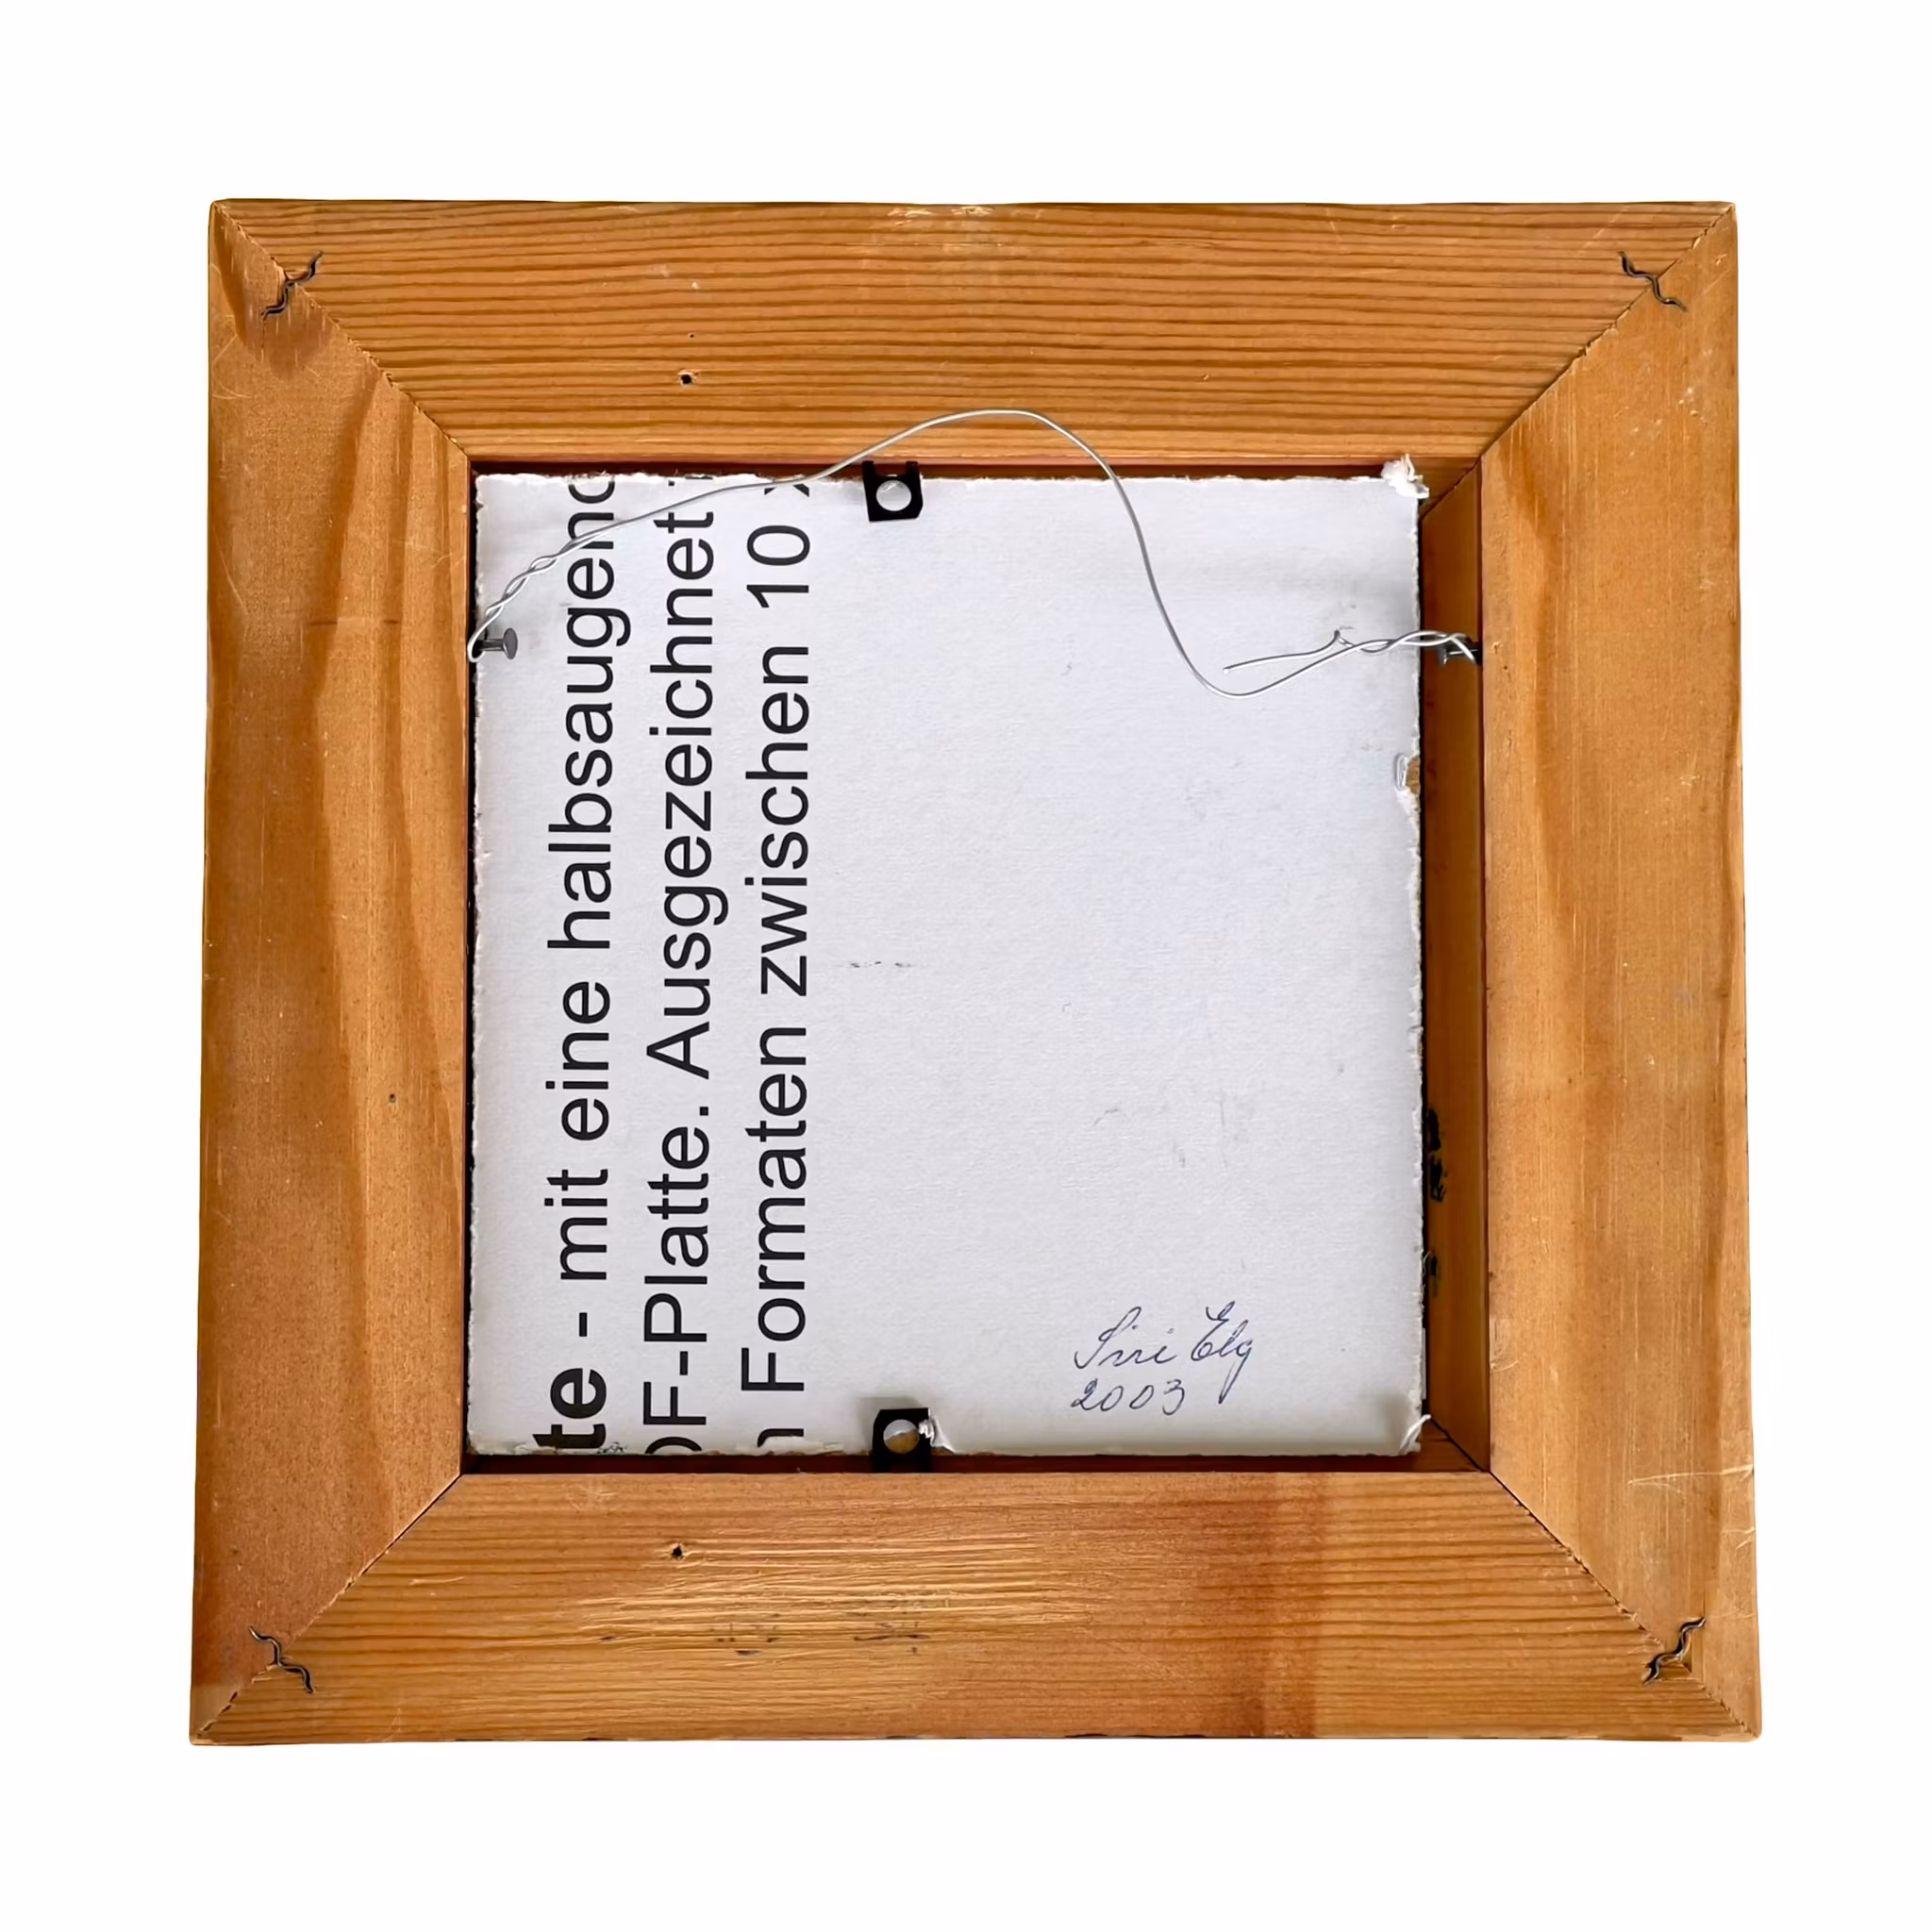 te - mit eine halbsaugend
DF-Platte. Ausgezeichnet
n Formaten zwischen 10 x
Siri Elg
2003